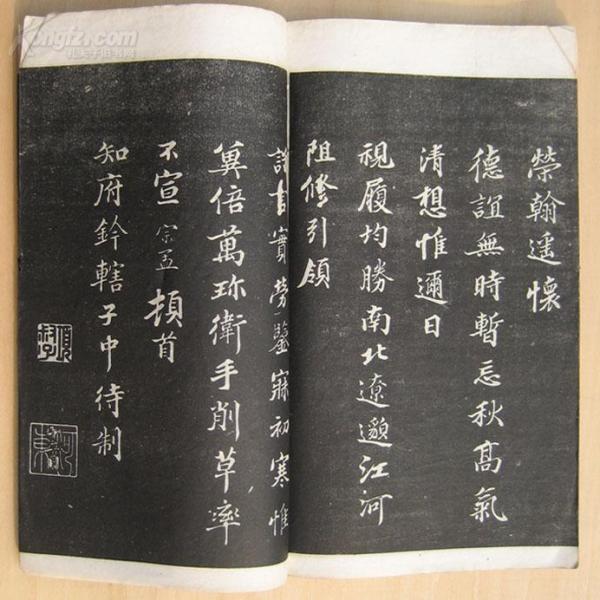 榮翰遥懷
德誼無時暫忘秋高氣
清想惟邇日
視履均勝南北遼邈江河
阻脩引領
言實勞鑒寐初寒惟
冀倍萬珎衛手削草率
不宣宗孟頓首
知府鈐轄子中待制
kongfz.com
孔夫子旧书网